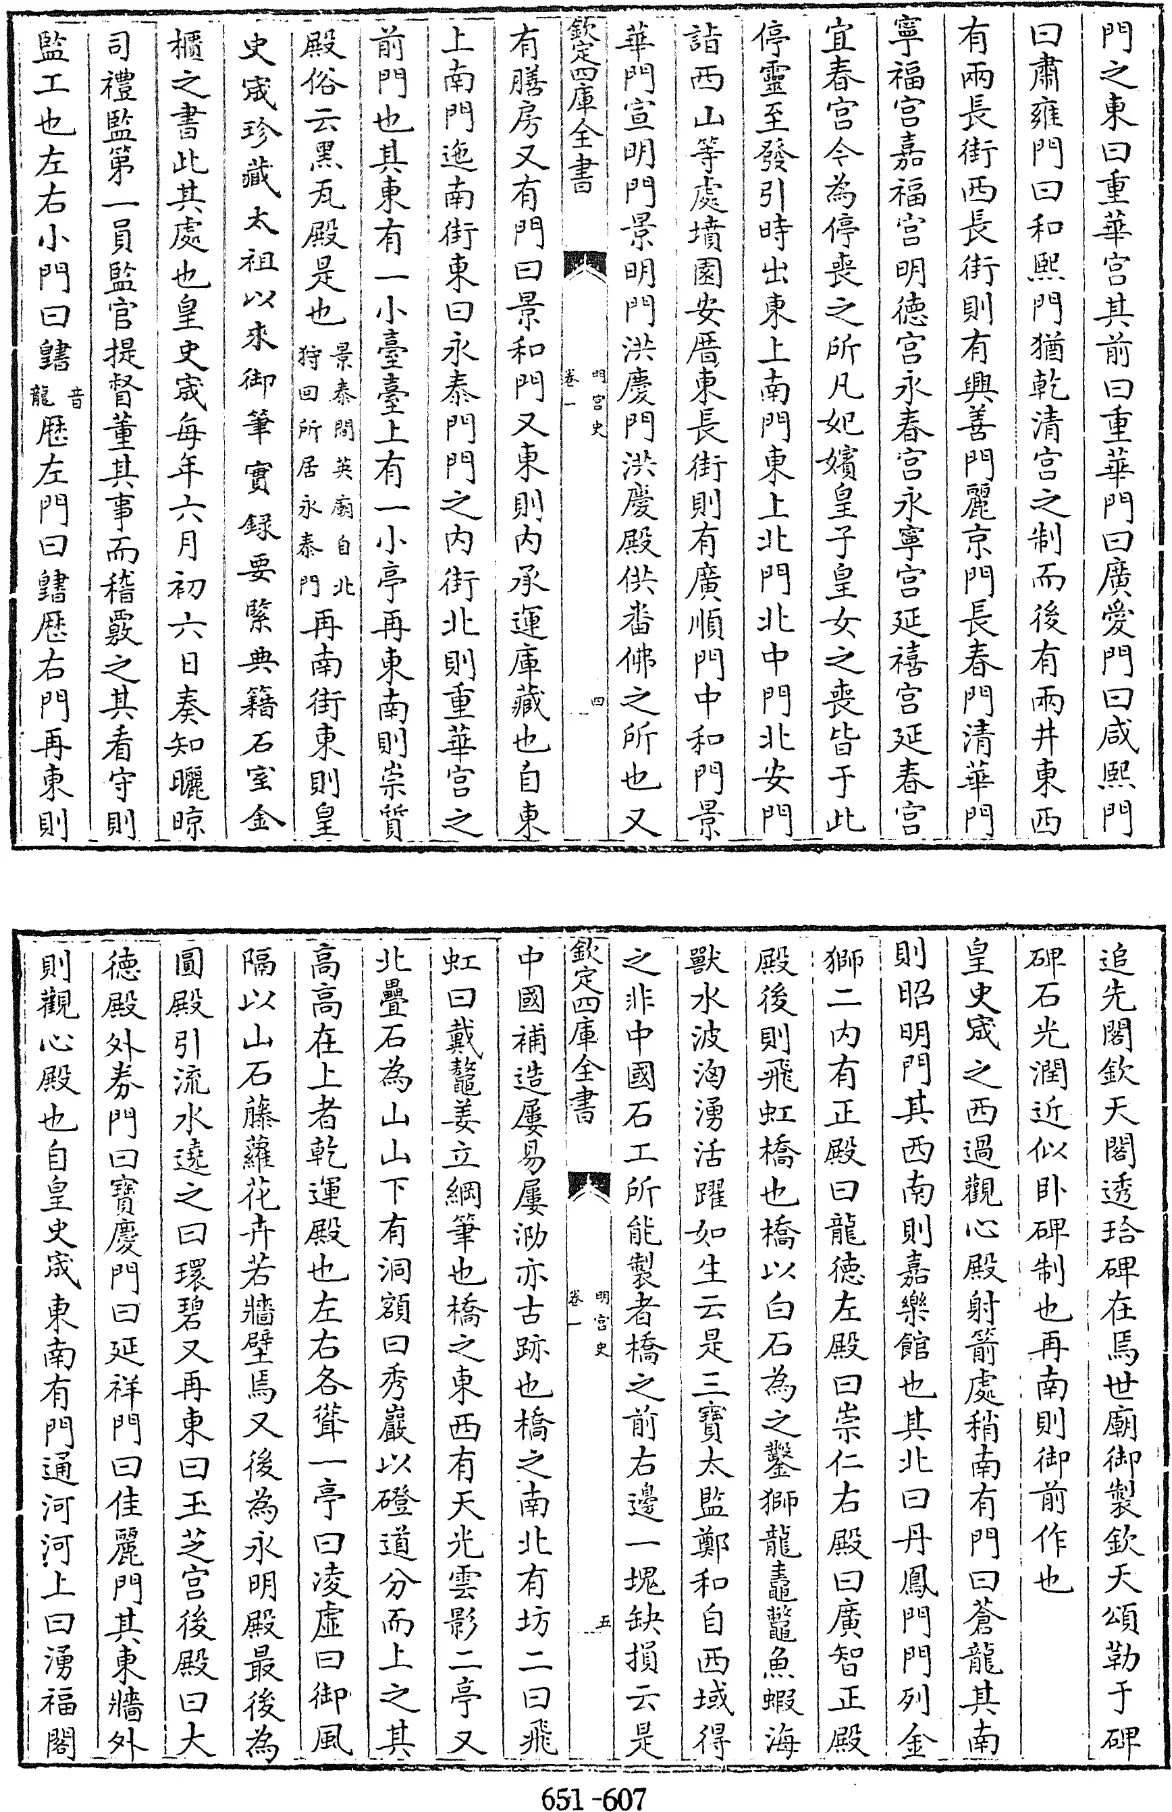 門之東曰重華宫其前曰重華門曰廣愛門曰咸熙門
曰肅雍門曰和熙門猶乾清宫之制而後有兩井東西
有兩長街西長街則有興善門麗京門長春門清華門
寧福宫嘉福宫明德宫永春宫永寧宫延禧宫延春宫
宜春宫今為停喪之所凡妃嬪皇子皇女之喪皆于此
停靈至發引時出東上南門東上北門北中門北安門
詣西山等處墳園安厝東長街則有廣順門中和門景
華門宣明門景明門洪慶門洪慶殿供畨佛之所也又
欽定四庫全書
明宫史
卷一
四
有膳房又有門曰景和門又東則内承運庫藏也自東
上南門迤南街東曰永泰門門之内街北則重華宫之
前門也其東有一小臺臺上有一小亭再東南則崇質
殿俗云黑瓦殿是也景泰間英廟自北狩回所居永泰門再南街東則皇
史宬珍藏太祖以來御筆實録要緊典籍石室金
櫃之書此其處也皇史宬每年六月初六日奏知曬晾
司禮監第一員監官提督董其事而稽覈之其看守則
監工也左右小門曰𨰻音龍歷左門曰𨰻歷右門再東則
追先閣欽天閣透玲碑在焉世廟御製欽天頌勒于碑
碑石光潤近似卧碑制也再南則御前作也
皇史宬之西過觀心殿射箭處稍南有門曰蒼龍其南
則昭明門其西南則嘉樂館也其北曰丹鳳門門列金
獅二内有正殿曰龍德左殿曰崇仁右殿曰廣智正殿
殿後則飛虹橋也橋以白石為之鑿獅龍鼉鼇魚蝦海
獸水波洶湧活躍如生云是三寶太監鄭和自西域得
之非中國石工所能製者橋之前右邊一塊缺損云是
欽定四庫全書
明宫史
卷一
五
中國補造屢易屢泐亦古跡也橋之南北有坊二曰飛
虹曰戴鼇姜立綱筆也橋之東西有天光雲影二亭又
北疊石為山山下有洞額曰秀巖以磴道分而上之其
高高在上者乾運殿也左右各聳一亭曰凌虛曰御風
隔以山石藤蘿花卉若牆壁焉又後為永明殿最後為
圓殿引流水遶之曰環碧又再東曰玉芝宫後殿曰大
德殿外券門曰寶慶門曰延祥門曰佳麗門其東牆外
則觀心殿也自皇史宬東南有門通河河上曰湧福閣
651-607